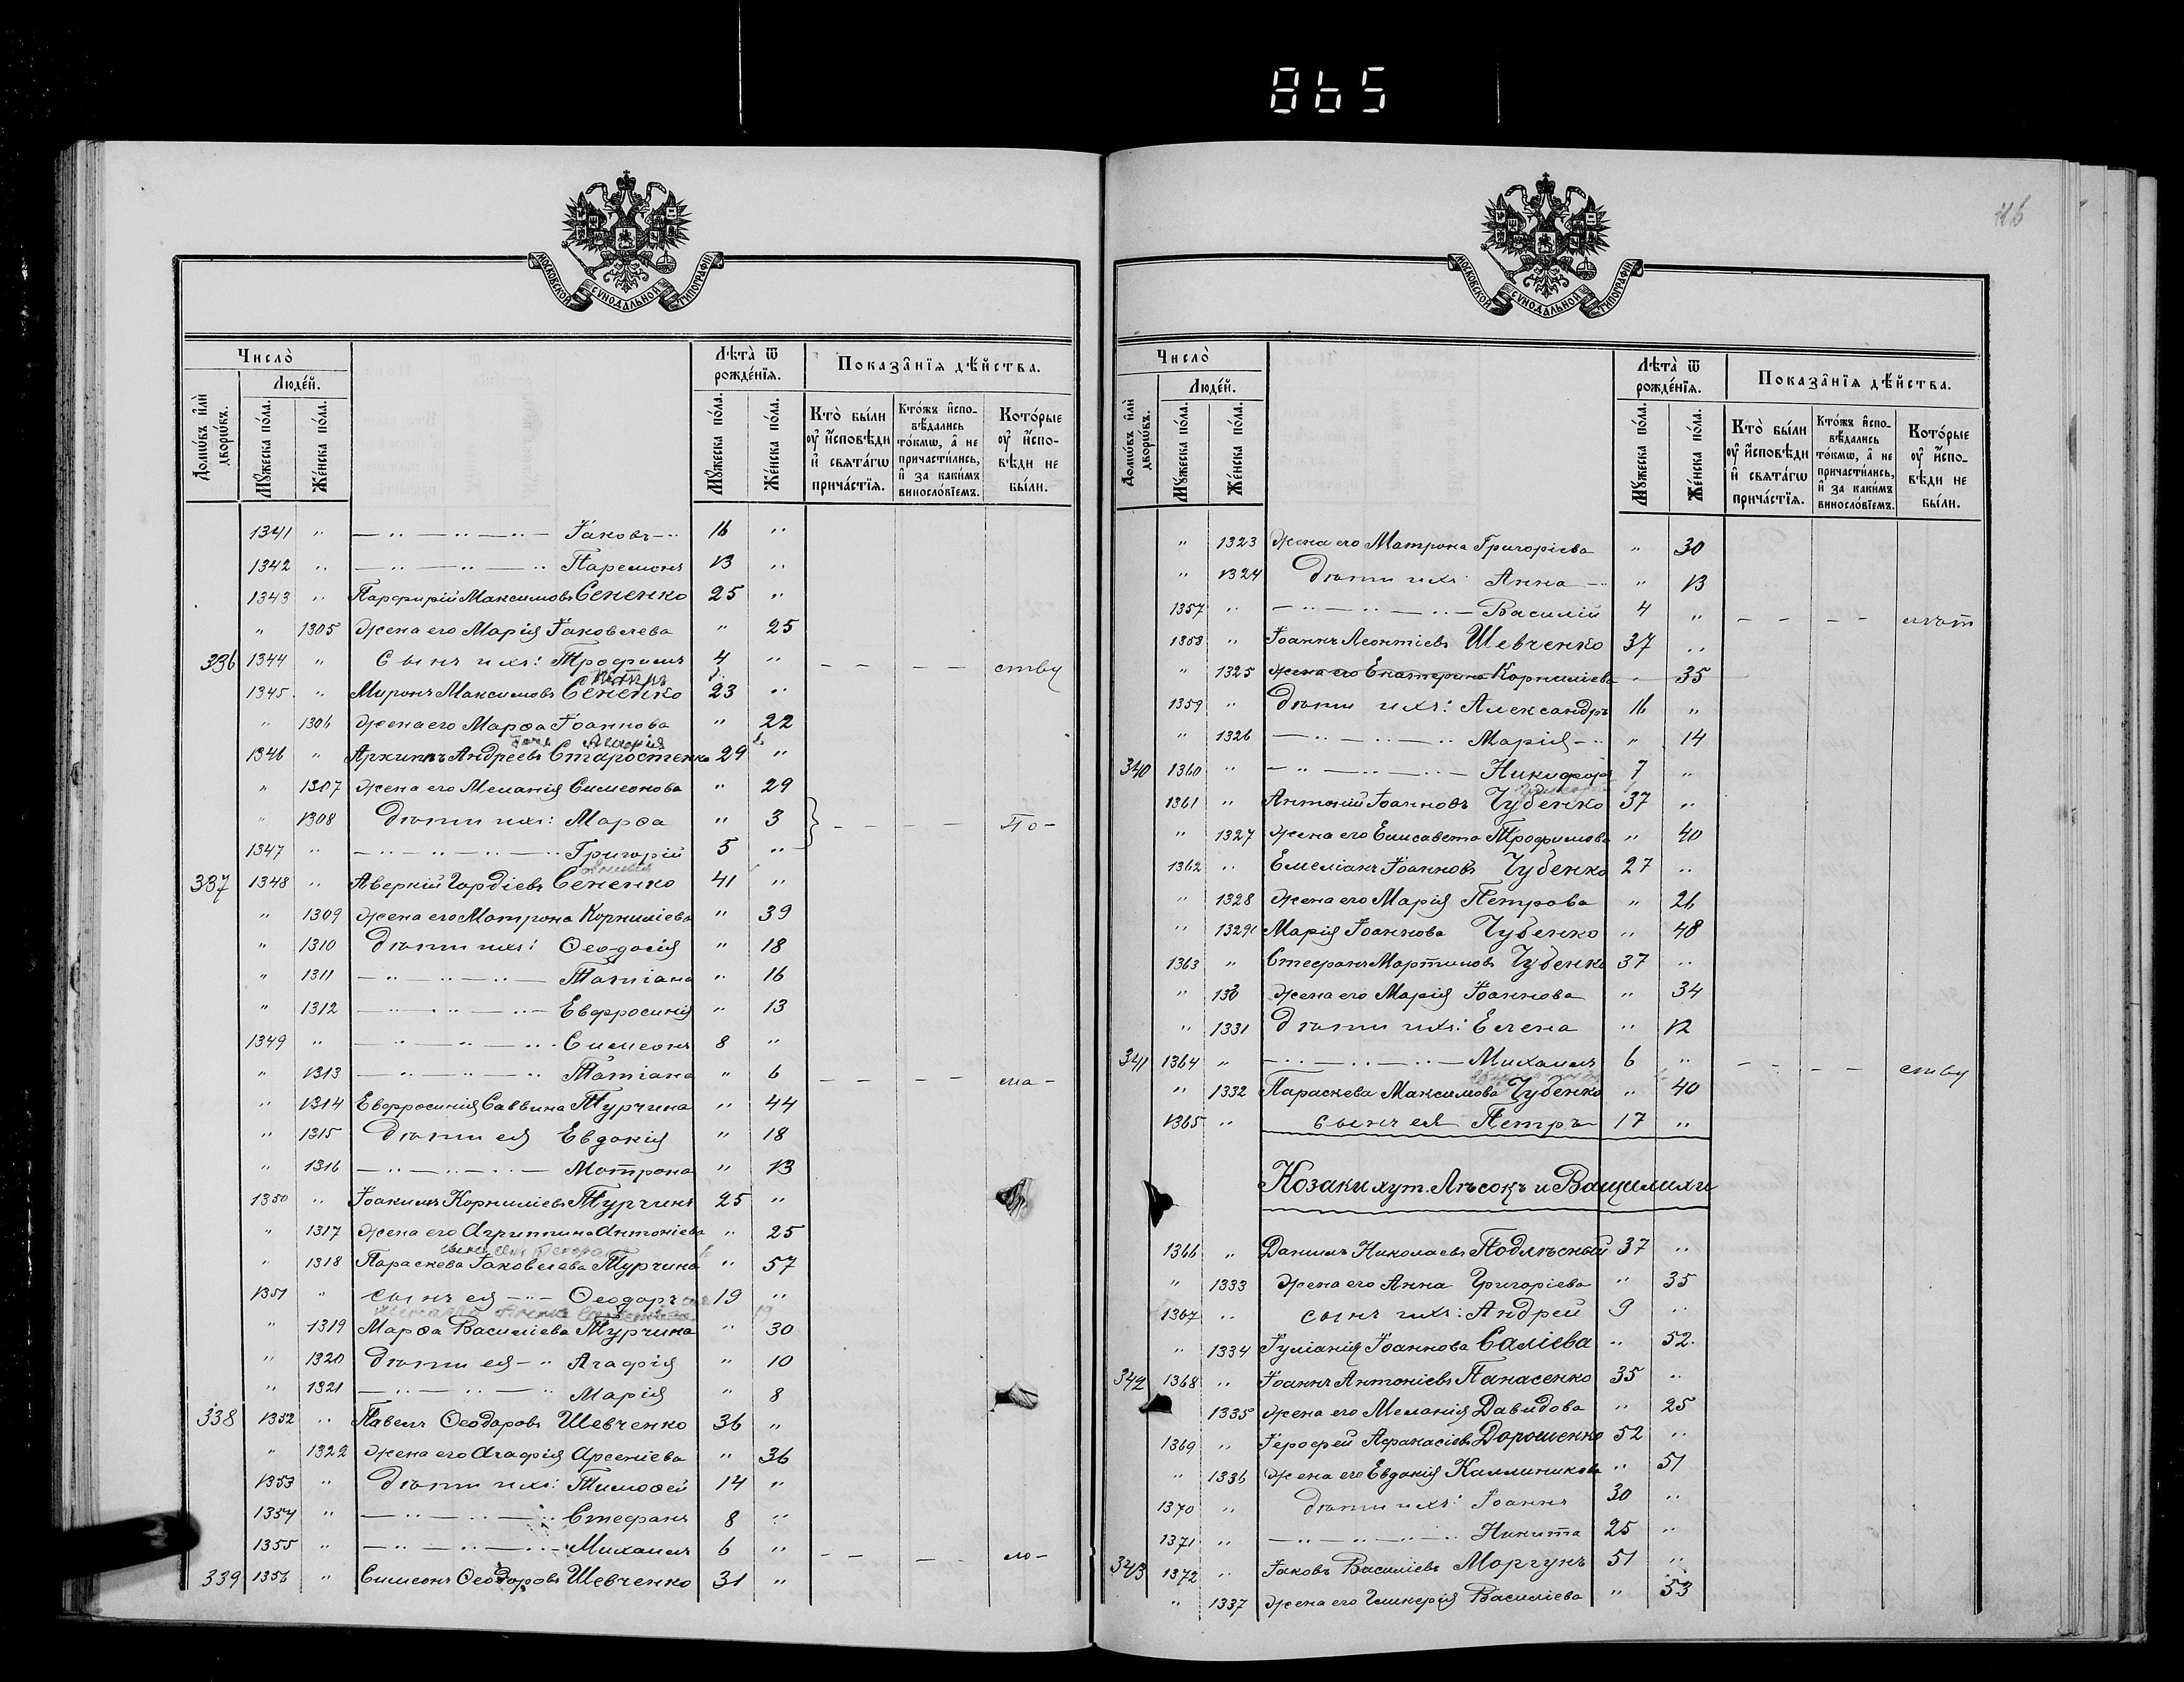 865
116
МОСКОВСКОЙ СѴНОДАЛЬНОЙ ТИПОГРАФІИ
Число̀
Людéй.
Лѣта̀ ѿ рождéнїя.
Показа̂нїя дѣ́йства.
Домѡ́въ и҆лѝ дворѡ́въ.
Мꙋ́жеска по́ла.
Же́нска по́ла.
Мꙋ́жеска по́ла.
Же́нска по́ла.
Кто̀ бы́ли ᲂу҆ и҆́сповѣди и҆ свята́гѡ прича́стїя.
Кто́жъ и҆спо-вѣ́дались то́кмѡ, а҆ не причасти́лись, и҆ за каки́мъ винослóвїемъ.
Кото́рые ᲂу҆ и҆́спо-вѣди не бы́ли.
1341 " — " — " — " — Іаковъ — " 16 "
1342 " — " — " — " Паремонъ 13 "
1343 " Парфирій Максимовъ Сененко 25 "
" 1305 Жена его Марія Іаковлева " 25
336 1344 " Сынъ ихъ: Трофимъ 4 " — — — — ству
1345 " Миронъ Максимовъ Сененко 23 "
" 1306 Жена его Марѳа Іоаннова " 22
1346 " Архипъ Андреевъ Старостенко 29 "
" 1307 Жена его Меланія Симеонова " 29
" 1308 Дѣти ихъ: Марѳа " 3 — — — — По-
1347 " — " — " — " — " Григорій 5 "
337 1348 " Аверкій Гордіевъ Сененко 41 "
" 1309 Жена его Матрона Корниліева " 39
" 1310 Дѣти ихъ: Ѳеодосія " 18
" 1311 — " — " — " — Татіана " 16
" 1312 — " — " — " — Евфросинія " 13
1349 " — " — " — " Симеонъ 8 "
" 1313 — " — " — " Татіана " 6 — — — — ма-
" 1314 Евфросинія Саввина Турчина " 44
" 1315 Дѣти ея Евдокія " 18
" 1316 — " — " — " — Мотрона " 13
1350 " Іоакимъ Корниліевъ Турчинъ 25 "
" 1317 Жена его Агриппина Антоніева " 25
" 1318 Параскева Іаковлева Турчина " 57
1351 " сынъ ея — " — Ѳеодоръ 19 "
" 1319 Марѳа Василіева Турчина " 30
" 1320 Дѣти ея — " Агафія " 10
" 1321 — " — " — " Марія " 8
338 1352 " Павелъ Ѳеодоровъ Шевченко 36 "
" 1322 Жена его Агафія Арсеніева " 36
1353 " Дѣти ихъ: Тимоѳей 14 "
1354 " — " — " — " Стефанъ 8 "
1355 " — " — " — " — Михаилъ 6 " — — — — ло-
339 1356 " Симеонъ Ѳеодоровъ Шевченко 31 "
МОСКОВСКОЙ СѴНОДАЛЬНОЙ ТИПОГРАФІИ
Число̀
Людéй.
Лѣта̀ ѿ рождéнїя.
Показа̂нїя дѣ́йства.
Домѡ́въ и҆лѝ дворѡ́въ.
Мꙋ́жеска по́ла.
Же́нска по́ла.
Мꙋ́жеска по́ла.
Же́нска по́ла.
Кто̀ бы́ли ᲂу҆ и҆́сповѣди и҆ свята́гѡ прича́стїя.
Кто́жъ и҆спо-вѣ́дались то́кмѡ, а҆ не причасти́лись, и҆ за каки́мъ винослóвїемъ.
Кото́рые ᲂу҆ и҆́спо-вѣди не бы́ли.
" 1323 Жена его Матрона Григоріева " 30
" 1324 Дѣти ихъ: Анна — " " 13
1357 " — " — " — " — Василій 4 " — — — — лѣт
1358 " Іоаннъ Леонтіевъ Шевченко 37 "
" 1325 Жена его Екатерина Корниліева — 35
1359 " Дѣти ихъ: Александръ 16 "
" 1326 — " — " — " Марія — " " 14
340 1360 " — " — " — " — Никифоръ 7 "
1361 " Антоній Іоанновъ Чубенко 37 "
" 1327 Жена его Елисавета Трофимова " 40
1362 " Емеліанъ Іоанновъ Чубенко 27 "
" 1328 Жена его Марія Петрова " 26
" 1329 Марія Іоаннова Чубенко " 48
1363 " Стефанъ Мартиновъ Чубенко 37 "
" 130 Жена его Марія Іоаннова " 34
" 1331 Дѣти ихъ: Елена " 12
341 1364 " — " — " — " — Михаилъ 6 " — — — — ству
" 1332 Параскева Максимова Чубенко " 40
1365 " сынъ ея Петръ 17 "
Козаки хут. Лѣсокъ и Ващилихи
1366 " Даниилъ Николаевъ Подлѣсный 37 "
" 1333 Жена его Анна Григоріева " 35
1367 " сынъ ихъ: Андрей 9 "
" 1334 Іуліанія Іоаннова Саліева " 52
342 1368 " Іоаннъ Антоніевъ Панасенко 35 "
" 1335 Жена его Меланія Давидова " 25
1369 " Іерофей Афанасіевъ Дорошенко 52 "
" 1336 Жена его Евдокія Каллиникова " 51
1370 " Дѣти ихъ: Іоаннъ 30 "
1371 " — " — " — " Никита 25 "
343 1372 " Іаковъ Василіевъ Моргунъ 51 "
" 1337 Жена его Гликерія Василіева " 53